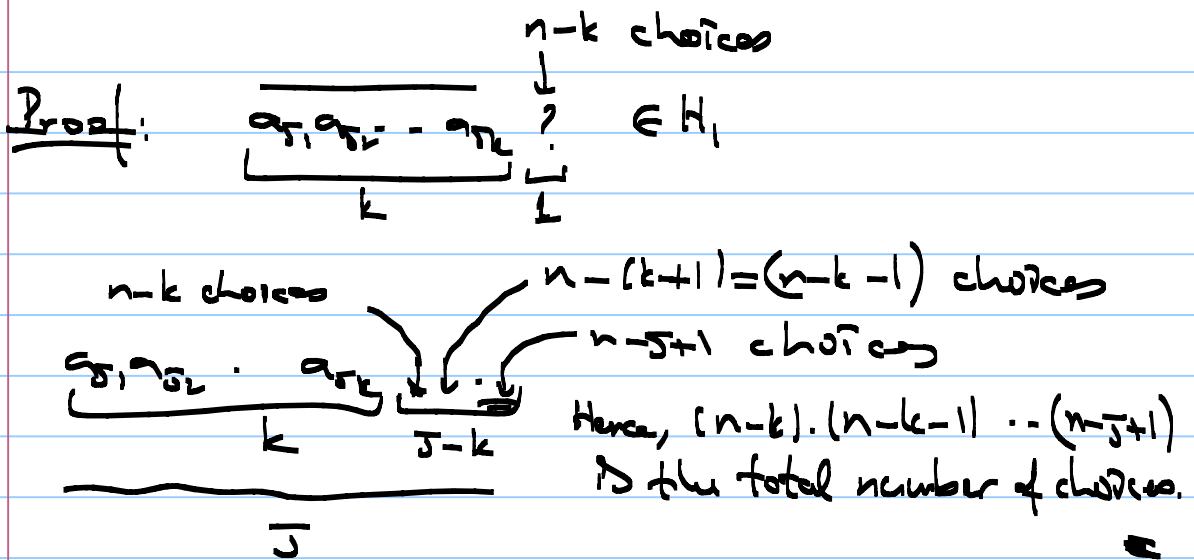 n-k choices
Proof: a_{j_1} a_{j_2} - - a_{j_k} ? ∈ H_1
k 1
n-k choices n-(k+1)=(n-k-1) choices
n-j+1 choices
a_{j_1} a_{j_2} . a_{j_k} .
k j-k Hence, (n-k).(n-k-1) .. (n-j+1)
is the total number of choices.
j